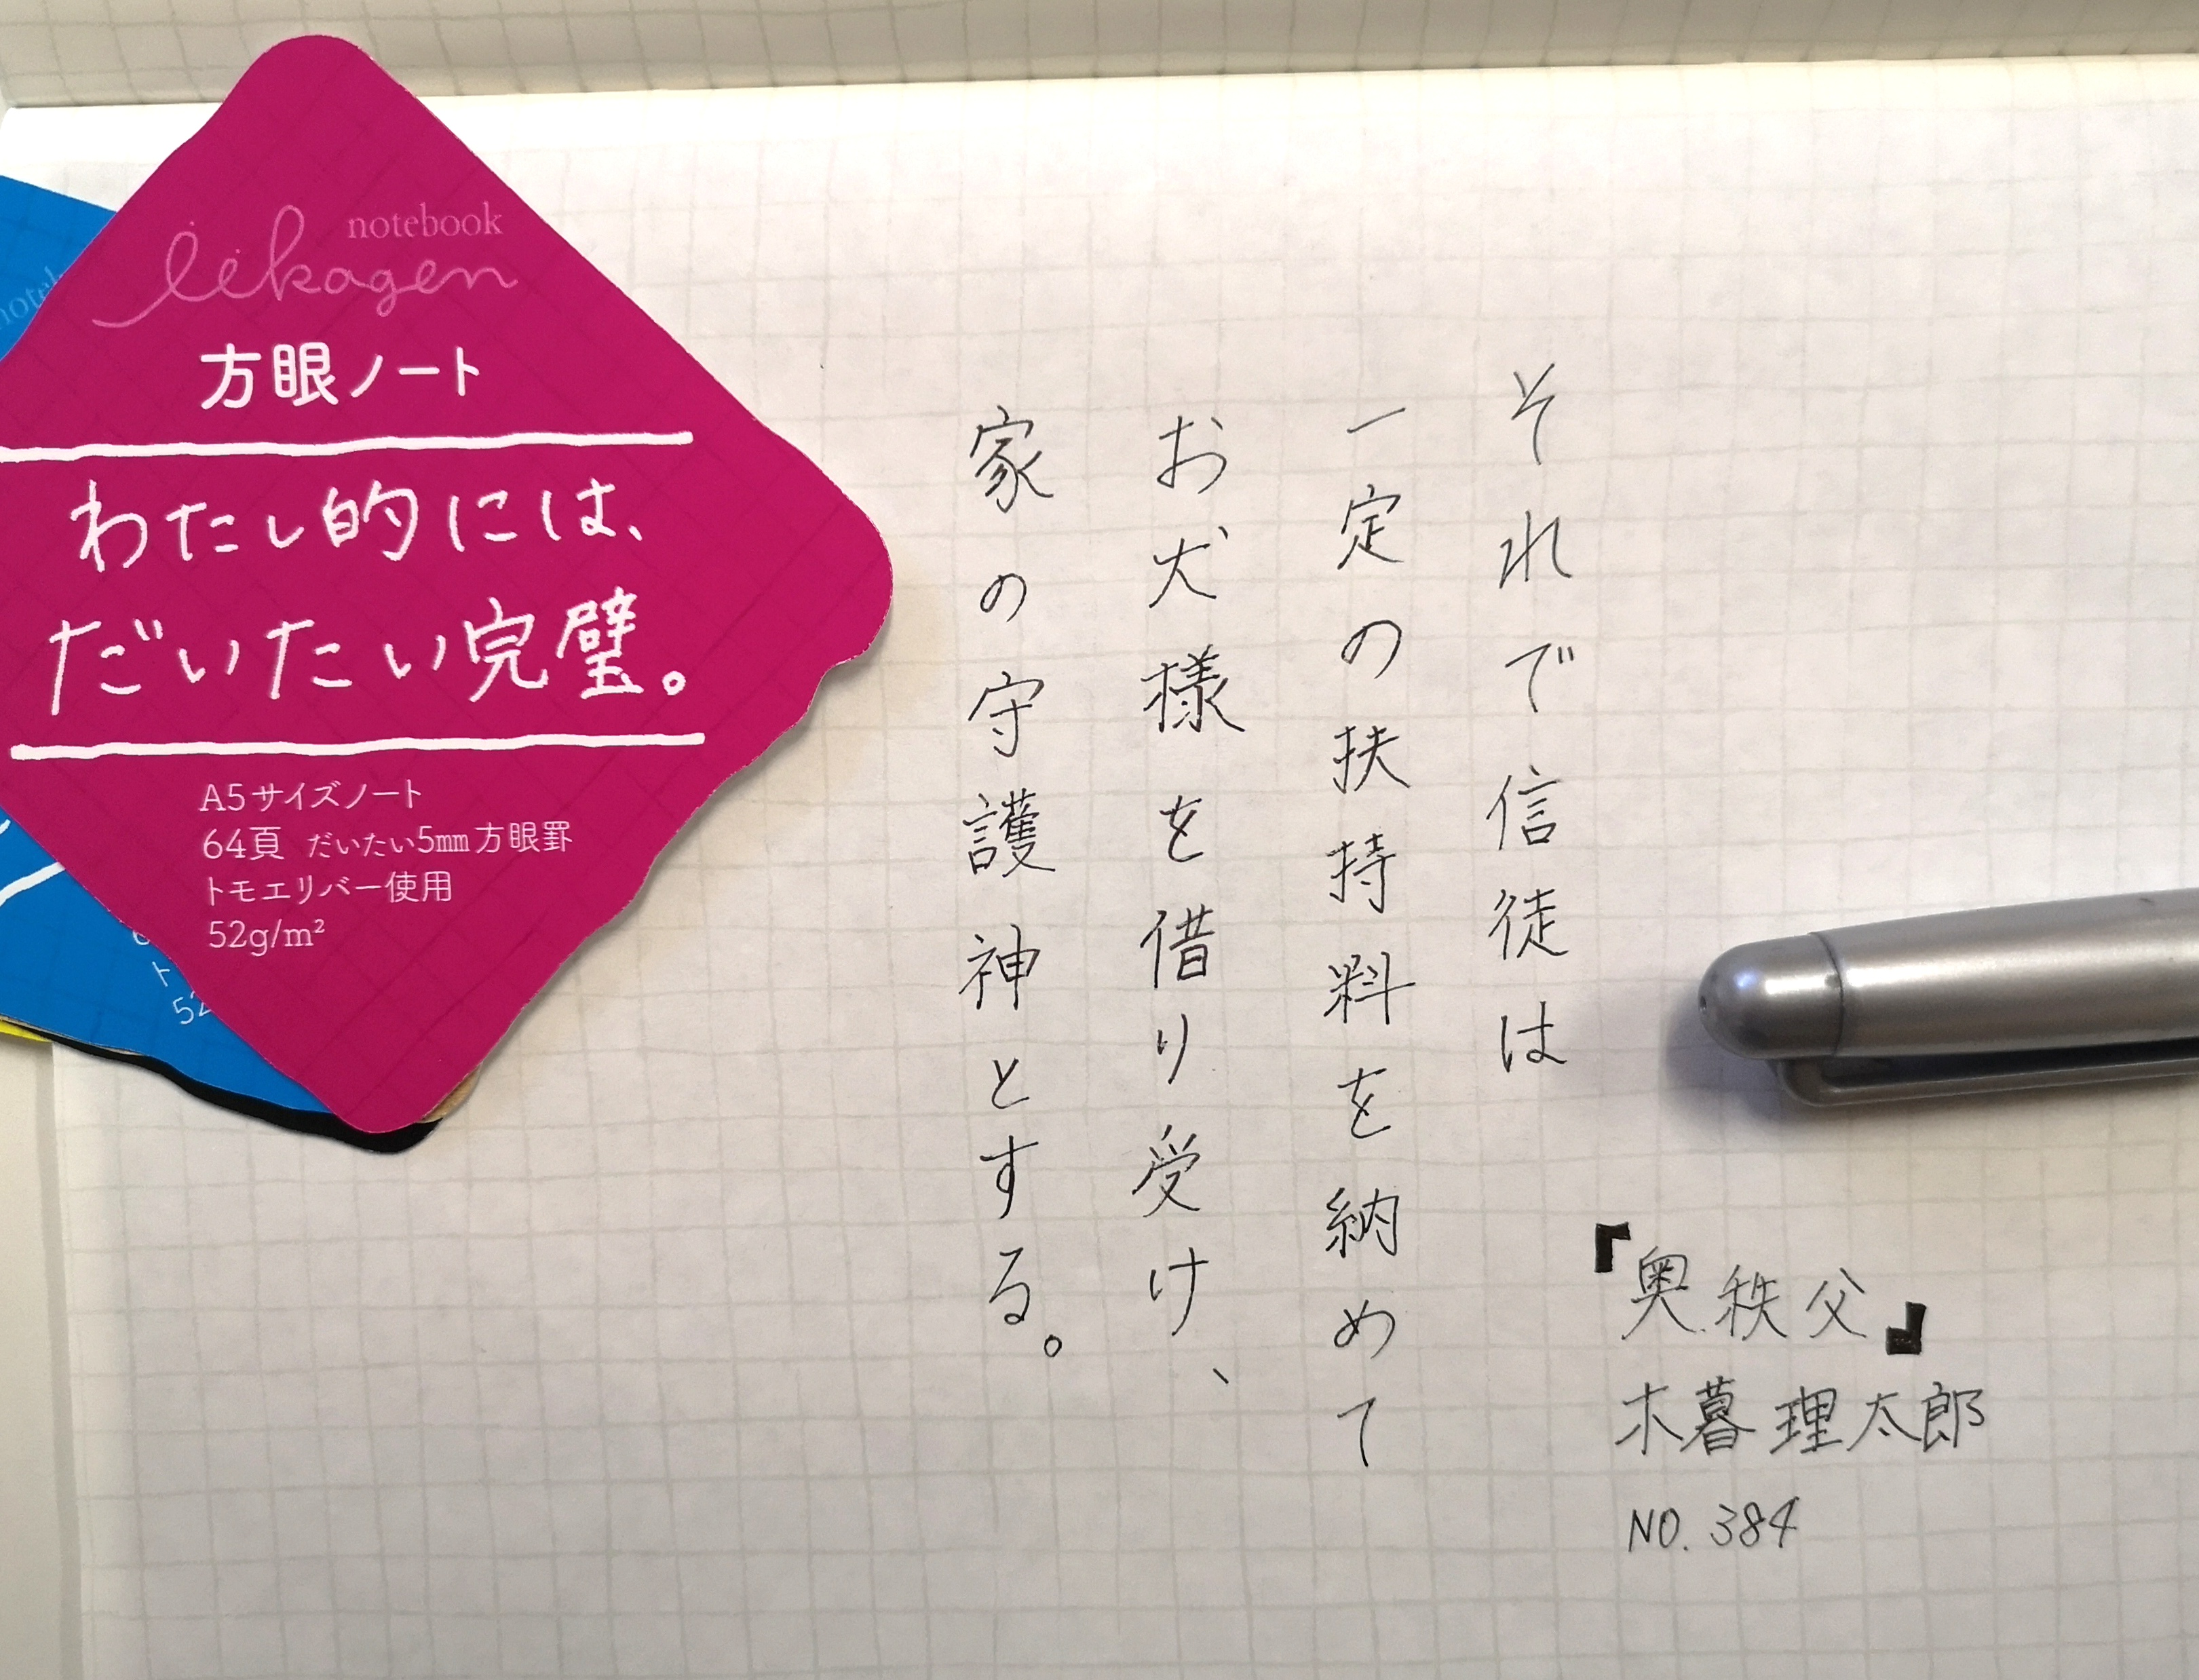 notebook
iikagen
方眼ノート
わたし的には、
だいたい完璧。
A5サイズノート
64頁 だいたい5mm方眼罫
トモエリバー使用
52g/m²
それで信徒は
一定の扶持料を納めて
お犬様を借り受け、
家の守護神とする。
『奥秩父』
木暮理太郎
NO. 384